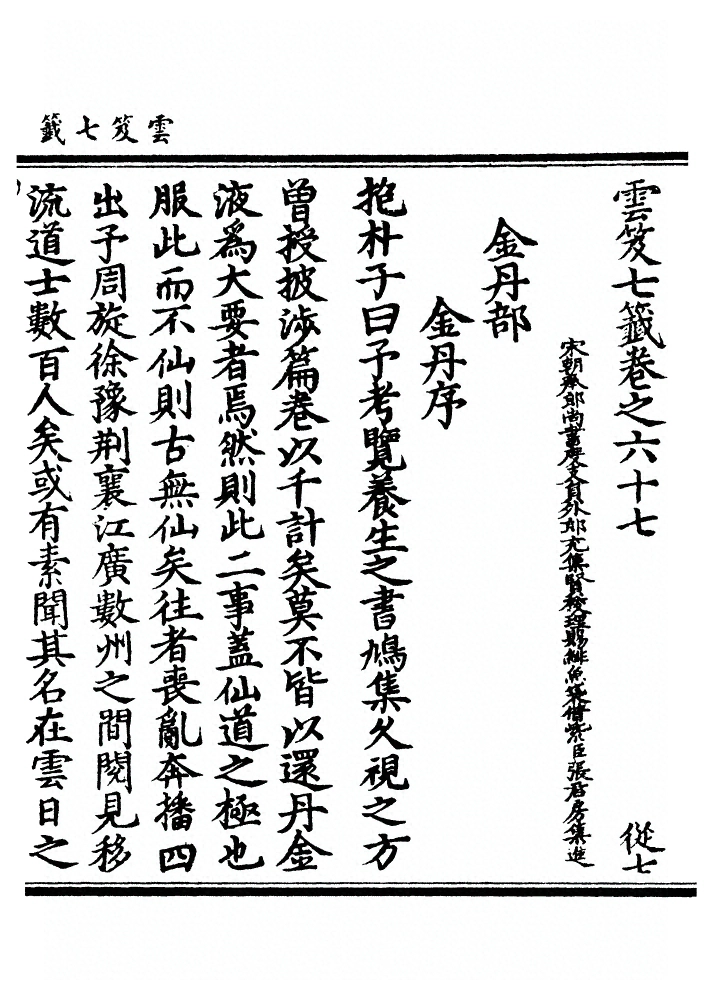 雲笈七籤
雲笈七籤卷之六十七
從七
宋朝奉郎尚書度支員外郎充集賢校理賜緋魚袋借紫臣張君房集進
金丹部
金丹序
抱朴子曰予考覽養生之書鳩集久視之方
曾授披涉篇卷以千計矣莫不皆以還丹金
液爲大要者焉然則此二事蓋仙道之極也
服此而不仙則古無仙矣往者喪亂奔播四
出予周旋徐豫荆襄江廣數州之間閱見移
流道士數百人矣或有素聞其名在雲日之